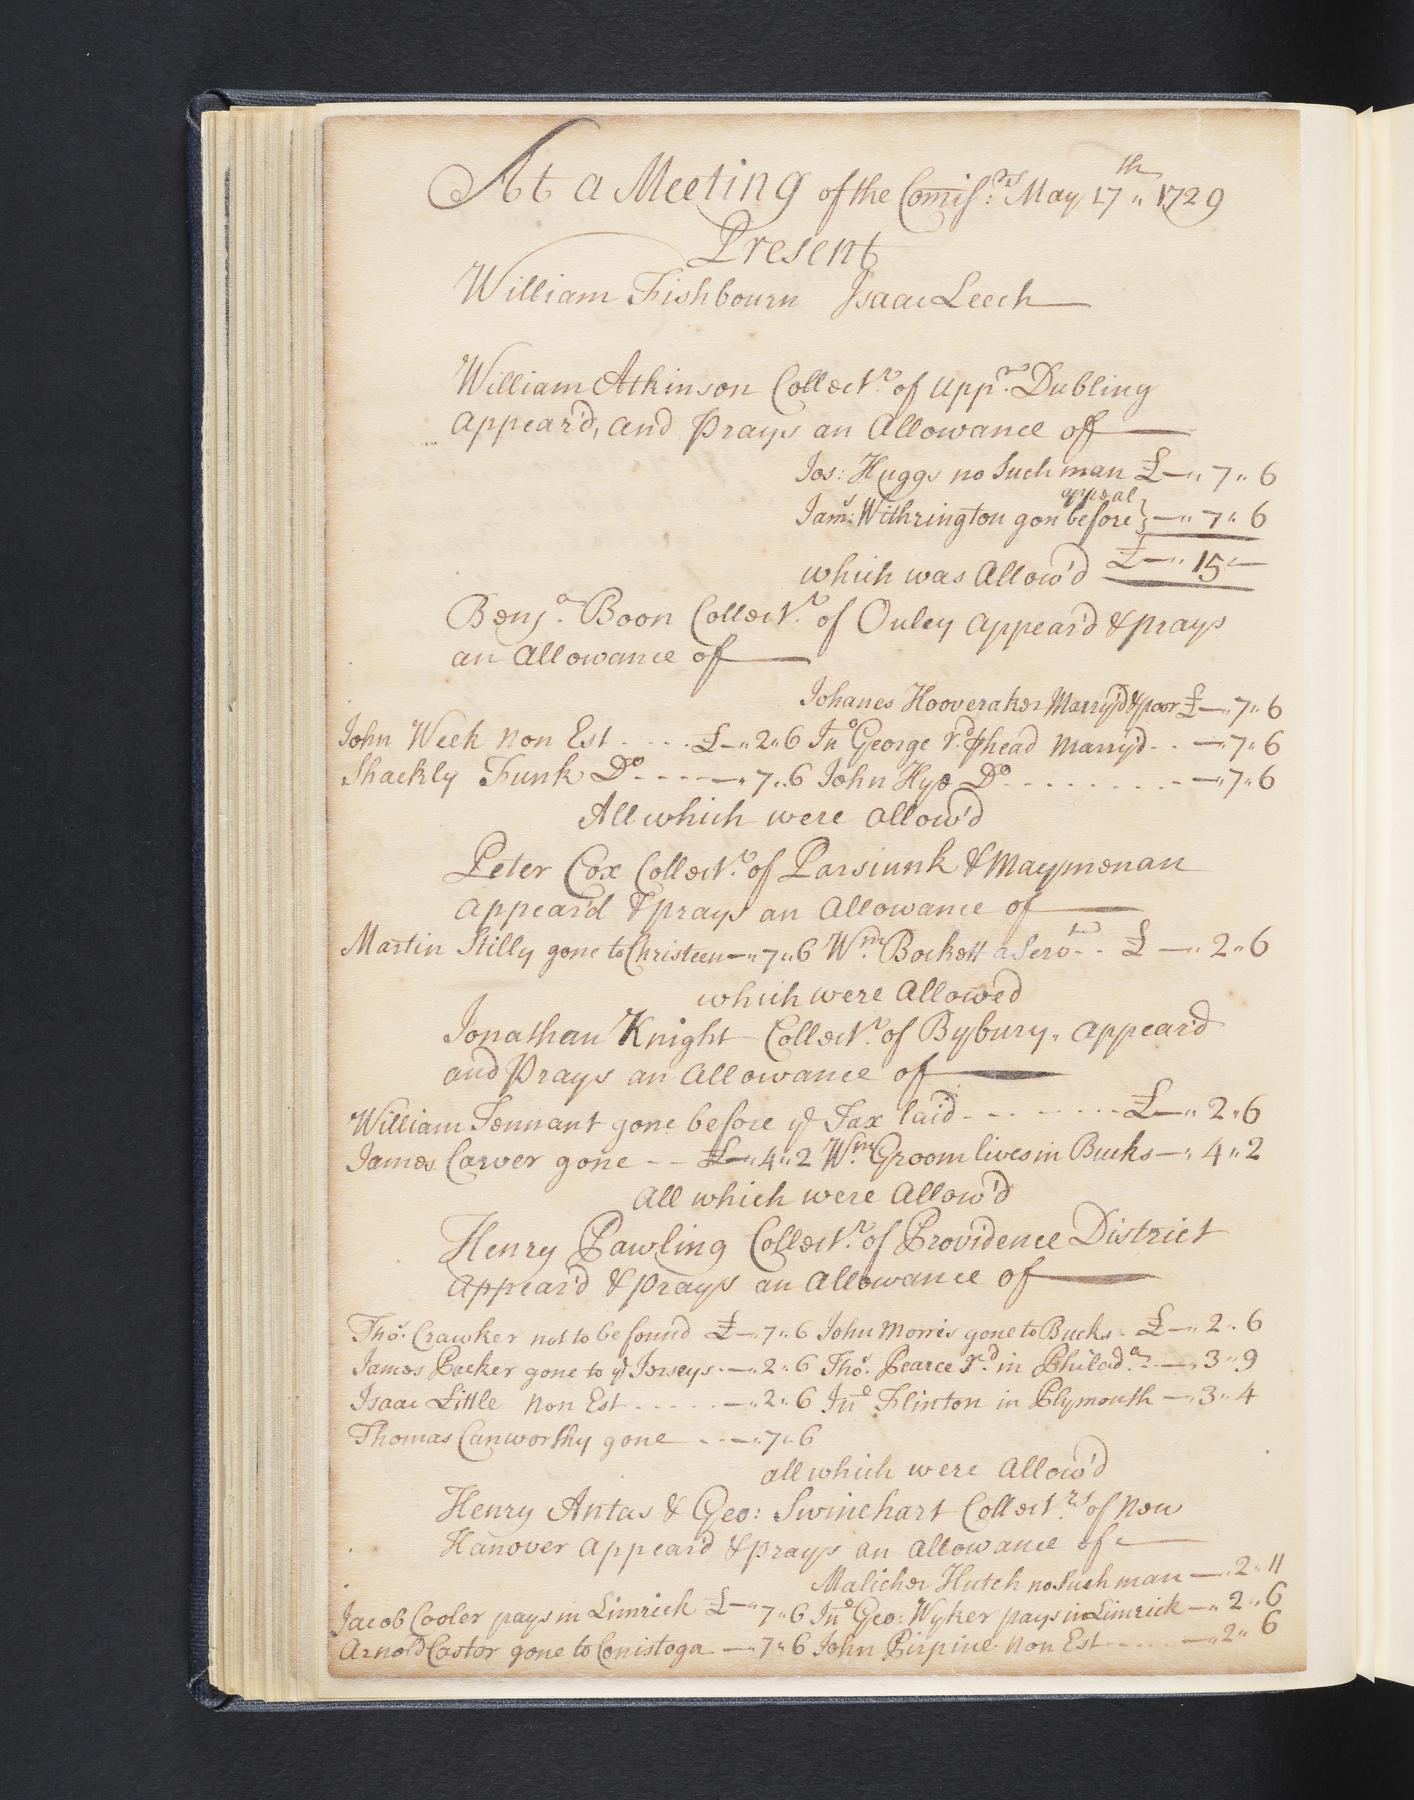 At a Meeting of the Comiss:rs May 17th 1729
Present
William Fishbourn Isaac Leech
William Atkinson Collect.r of Upp.r Dubling
appear'd, and prays an Allowance of
Jos: Huggs no Such man £—„7„6
appeal
Jam:s Withrington gon before } —„7„6
which was Allow'd £—„15„—
Benj.a Boon Collect.r of Ouley appear'd & prays
an Allowance of
Johanes Hooveraker Marry'd & poor £—„7„6
John Week non Est £—„2„6 Jno George head Marry'd —„7„6
Shackly Funk Do —„7„6 John Hye Do —„7„6
All which were allow'd
Peter Cox Collect.r of Parsiunk & Maymenan
appear'd & prays an Allowance of
Martin Stilly gone to Christeen —„7„6 Wm. Bockett a Serv.t £—„2„6
which were Allowed
Jonathan Knight Collect.r of Bybury, appear'd
and Prays an Allowance of
William Tennant gone before ye Tax laid £—„2„6
James Carver gone £—„4„2 Wm. Groom lives in Bucks —„4„2
All which were Allow'd
Henry Pawling Collect.r of Providence District
appear'd & prays an allowance of
Tho.s Crawker not to be found £—„7„6 John Morris gone to Bucks £—„2„6
James Packer gone to ye Jerseys —„2„6 Tho.s Pearce r.d in Philad.a —„3„9
Isaac Little non Est —„2„6 Jno Flinton in Plymouth —„3„4
Thomas Canworthy gone —„7„6
all which were Allow'd
Henry Antas & Geo: Swinehart Collect.rs of New
Hanover appear'd & prays an allowance of
Malicher Hutch no Such man —„2„11
Jacob Cooler pays in Limrick £—„7„6 Jno Geo: Wyker pays in Limrick —„2„6
Arnold Castor gone to Conistoga —„7„6 John Pirpine non Est —„2„6